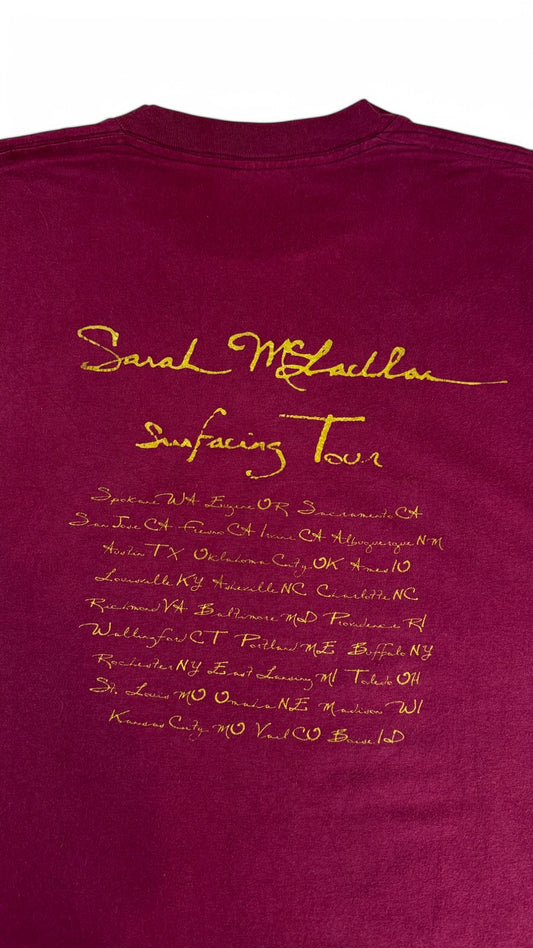 Sarah McLachlan
Surfacing Tour
Spokane WA Eugene OR Sacramento CA
San Jose CA Fresno CA Irvine CA Albuquerque NM
Austin TX Oklahoma City OK Ames IO
Louisville KY Asheville NC Charlotte NC
Richmond VA Baltimore MD Providence RI
Wallingford CT Portland ME Buffalo NY
Rochester NY East Lansing MI Toledo OH
St. Louis MO Omaha NE Madison WI
Kansas City MO Vail CO Boise ID